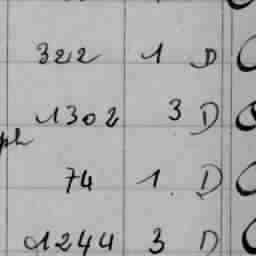 322 1 D
1302 3 D
ph
74 1. D
1244 3 D